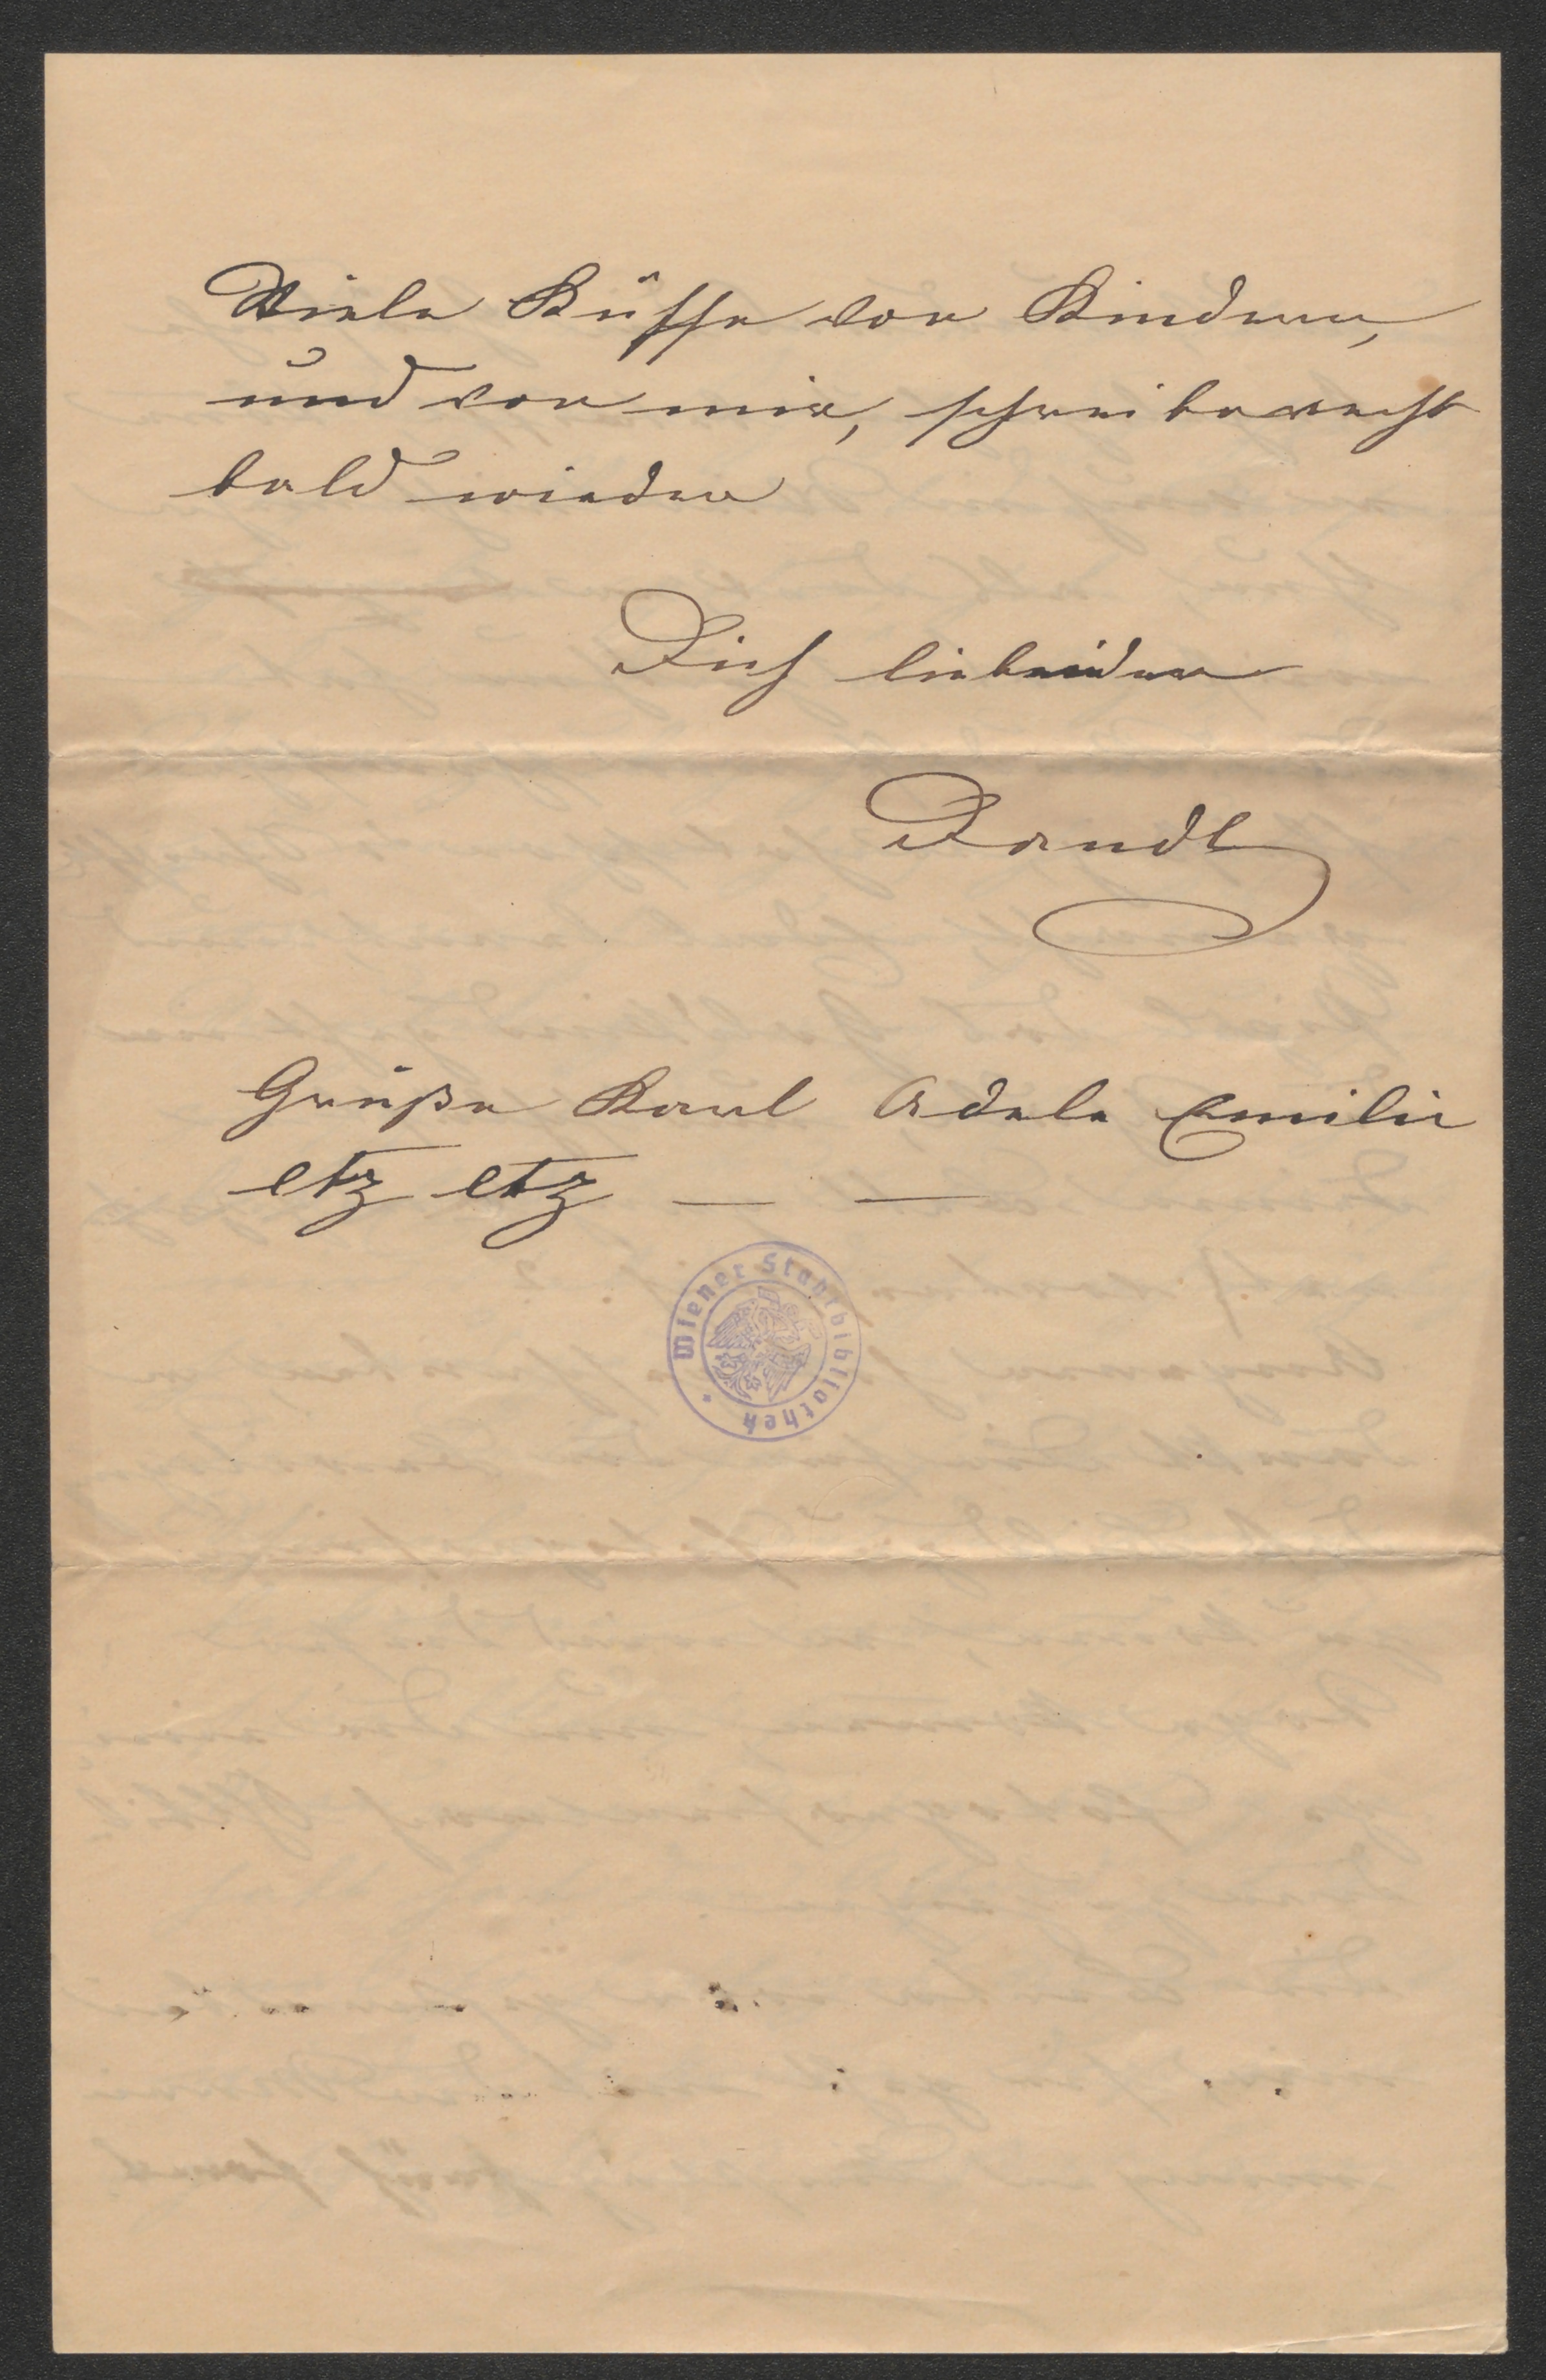 Viele Küsse von Kindern,
und von mir, schreibe recht
bald wieder
Dich liebender
Grüße Karl Adele Emilie
etz etz — —
Wiener Stadtbibliothek